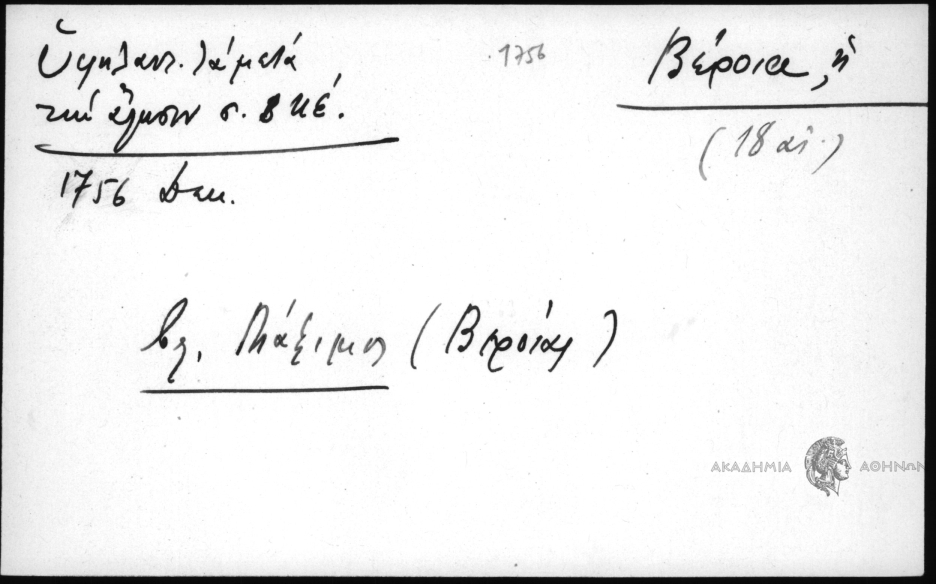 Ὑψηλαντ. Τὰ μετὰ
τὴν ἅλωσιν σ. ΒΚΕ΄.
1756 Δεκ.
1756
Βέροια, ἡ
(18 αἰ.)
βλ. Μάξιμος (Βεροίας)
ΑΚΑΔΗΜΙΑ ΑΘΗΝΩΝ